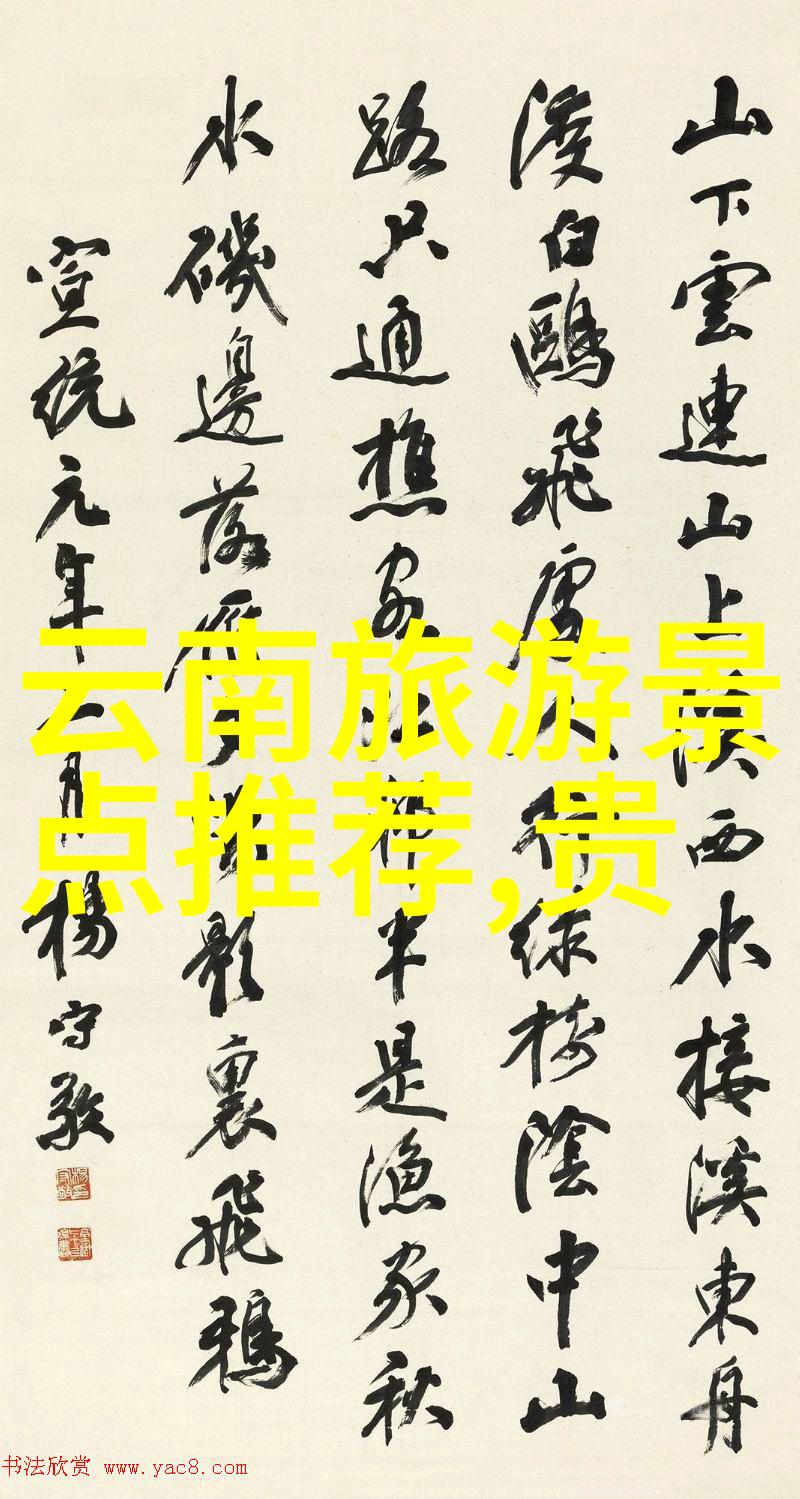 山下雲連山上溪西水接溪東舟
渡白鷗飛處人行緑樹陰中山
路只通樵客江村半是漁家秋
水磯邊落雁夕陽影裏飛鴉
宣統元年月楊守敬
云南旅游景
点推荐,贵
书法欣赏 www.yac8.com